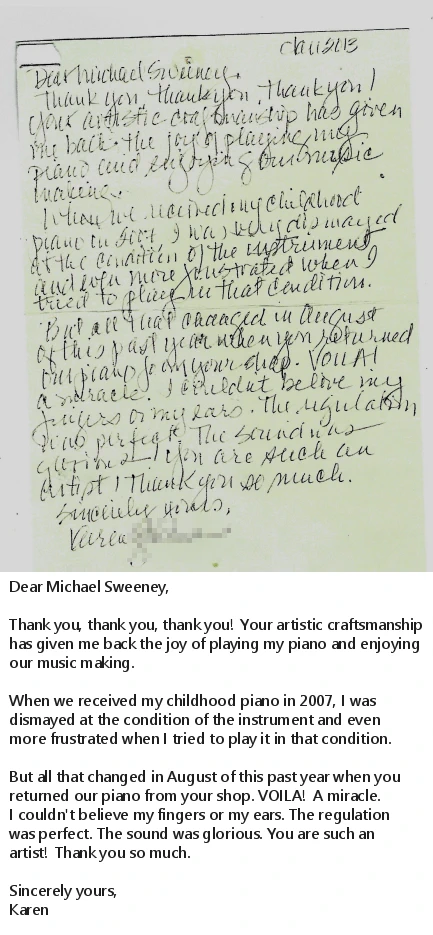 Jan 2013
Dear Michael Sweeney,
Thank you, thank you, thank you!
Your artistic craftsmanship has given
me back the joy of playing my
piano and enjoying our music
making.
When we received my childhood
piano in 2007, I was very dismayed
at the condition of the instrument
and even more frustrated when I
tried to play it in that condition.
But all that changed in August
of this past year when you returned
our piano from your shop. VOILA!
a miracle. I couldn't believe my
fingers or my ears. The regulation
was perfect. The sound was
glorious! You are such an
artist! Thank you so much.
Sincerely yours,
Karen
Dear Michael Sweeney,
Thank you, thank you, thank you!  Your artistic craftsmanship
has given me back the joy of playing my piano and enjoying
our music making.
When we received my childhood piano in 2007, I was
dismayed at the condition of the instrument and even
more frustrated when I tried to play it in that condition.
But all that changed in August of this past year when you
returned our piano from your shop. VOILA!  A miracle.
I couldn't believe my fingers or my ears. The regulation
was perfect. The sound was glorious. You are such an
artist!  Thank you so much.
Sincerely yours,
Karen